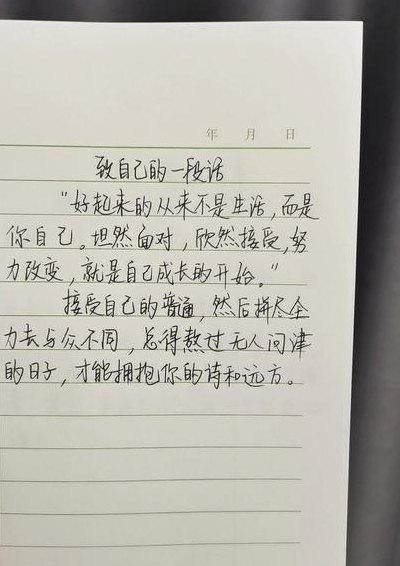 年 月 日
致自己的一段话
"好起来的从来不是生活,而是
你自己。坦然面对,欣然接受,努
力改变,就是自己成长的开始。"
接受自己的普通,然后拼尽全
力去与众不同,总得熬过无人问津
的日子,才能拥抱你的诗和远方。